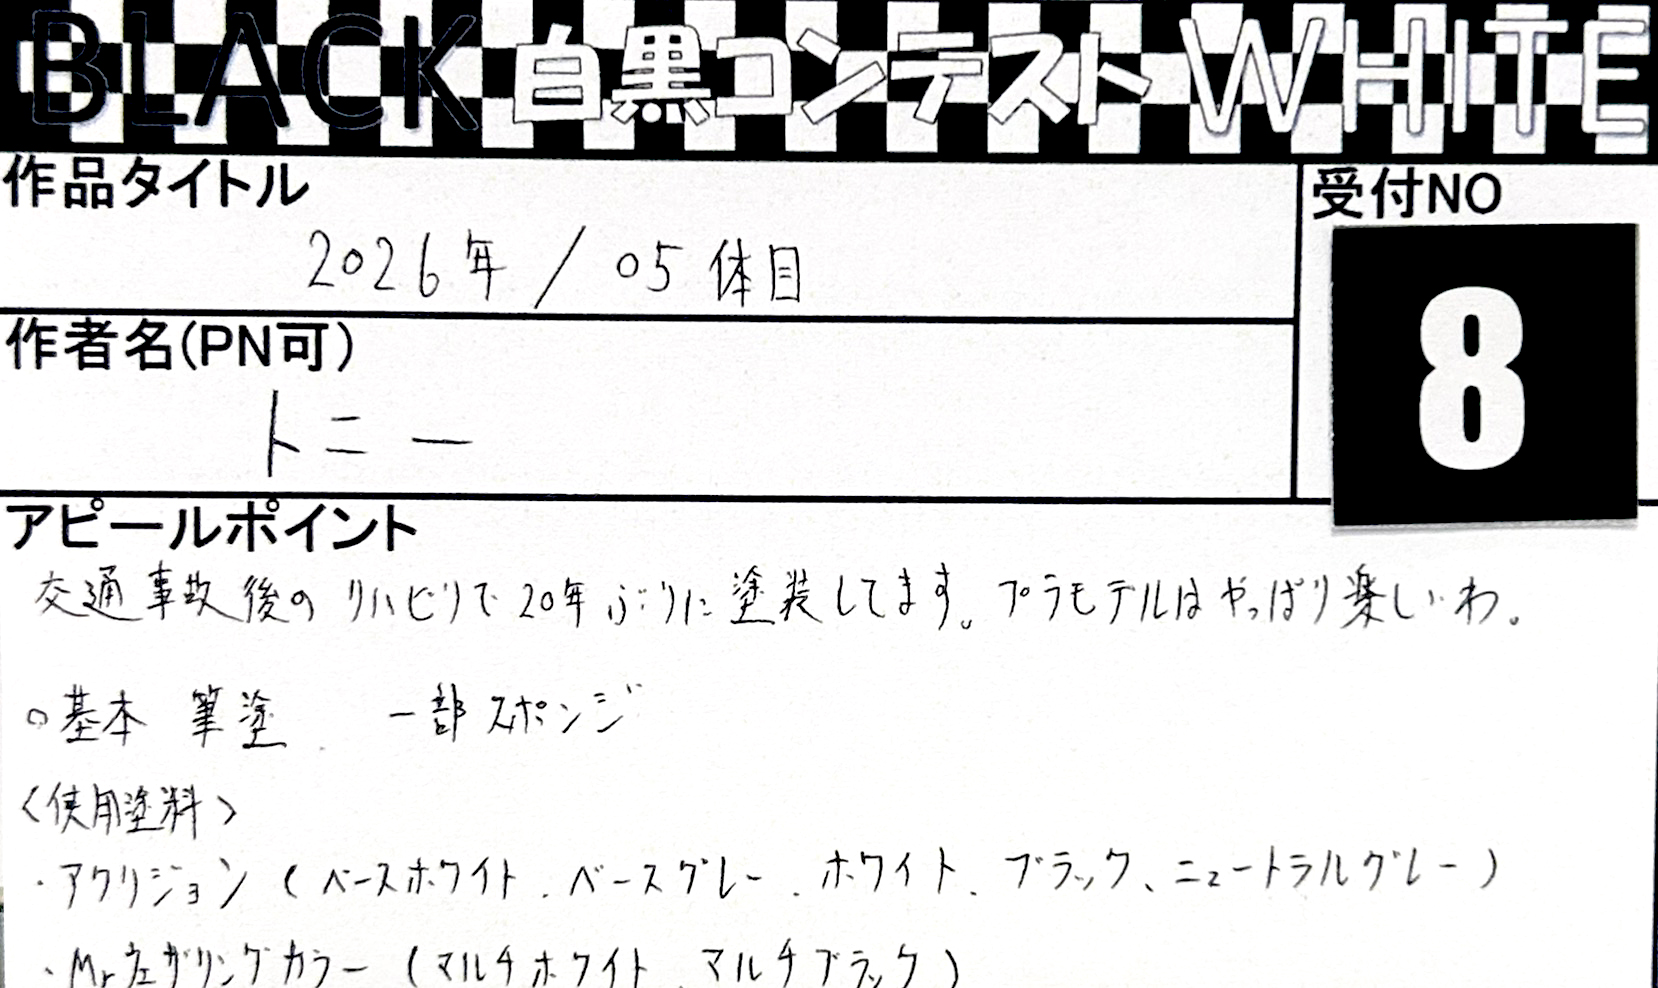 BLACK 白黒コンテスト WHITE
作品タイトル
2026年 / 05体目
受付NO
8
作者名(PN可)
トニー
アピールポイント
交通事故後のリハビリで20年ぶりに塗装してます。プラモデルはやっぱり楽しいわ。
○基本 筆塗 一部スポンジ
<使用塗料>
・アクリジョン(ベースホワイト、ベースグレー、ホワイト、ブラック、ニュートラルグレー)
・Mrウェザリングカラー(マルチホワイト、マルチブラック)